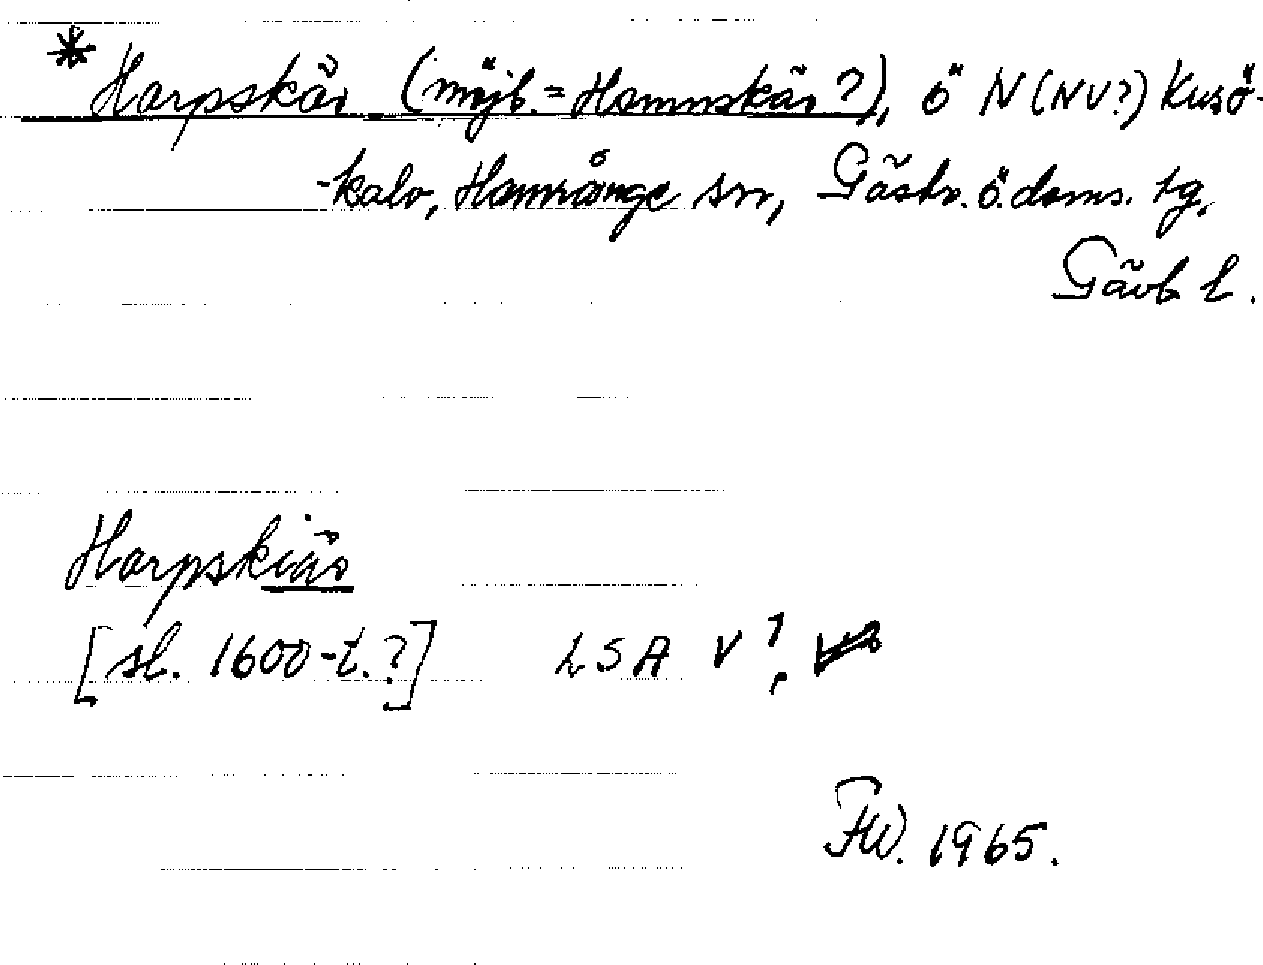 * Harpskär (möjl. = Hamnskär?), ö N (NV?) Kusö-
-kalv, Hamrånge sn, Gästr. ö. doms. tg,
Gävb l.
Harpskiär
[sl. 1600-t.?] LSA V ?,
FW. 1965.